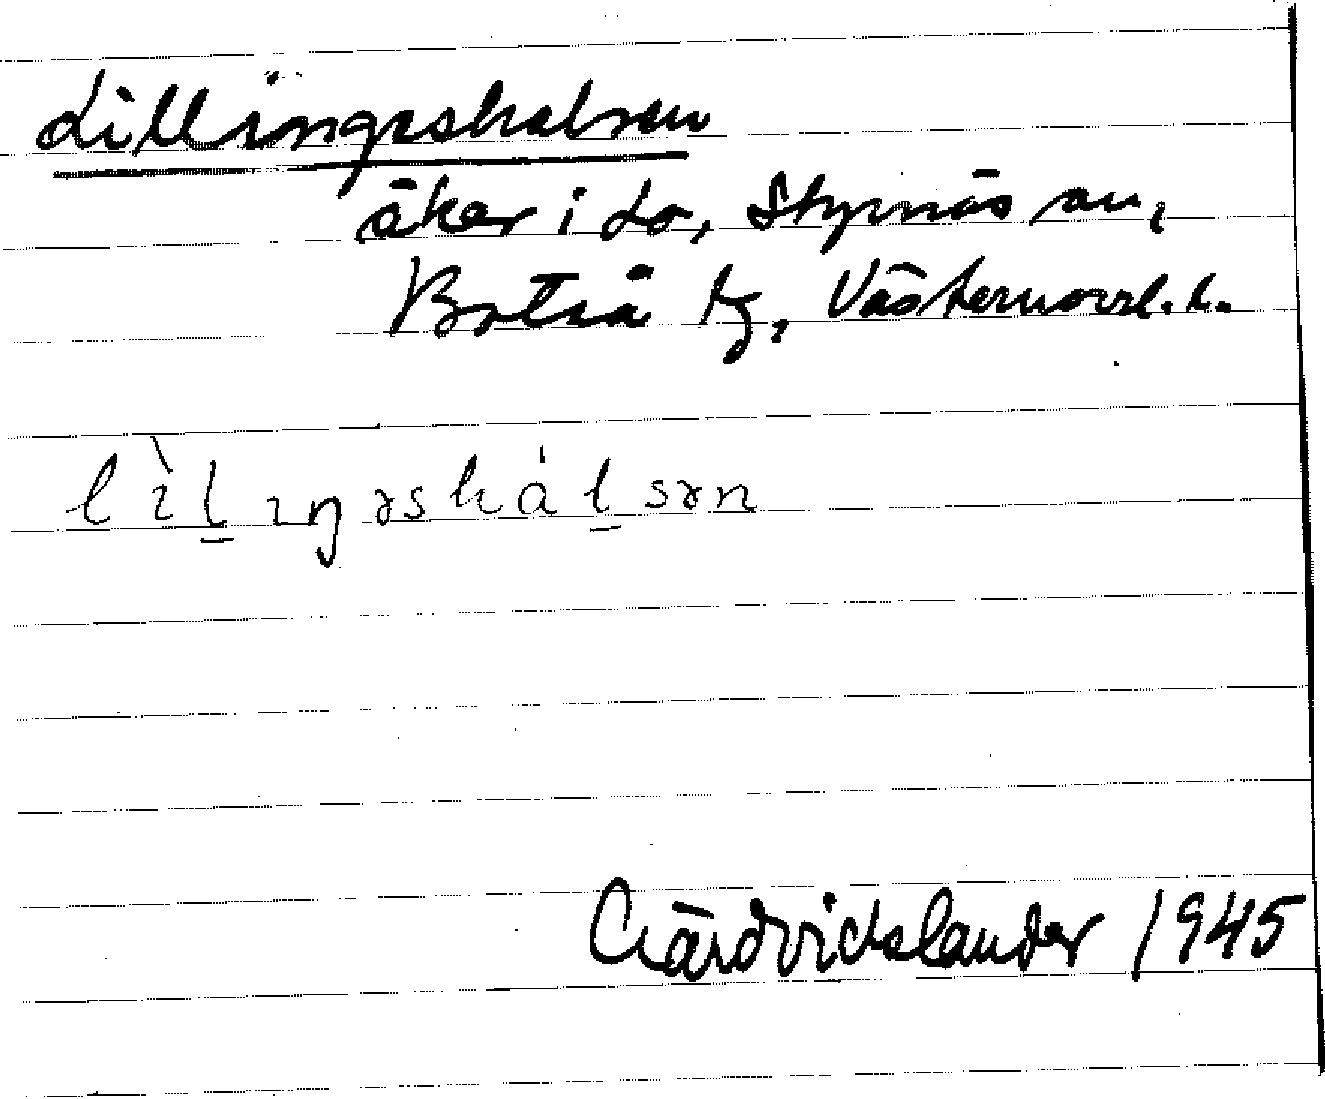 Lillängeshalsen
åker i Lo, Styrnäs sn,
Boteå tg, Västernorrl. l.
lìḻıŋəshá́ḻsən
Gärdvidslander 1945